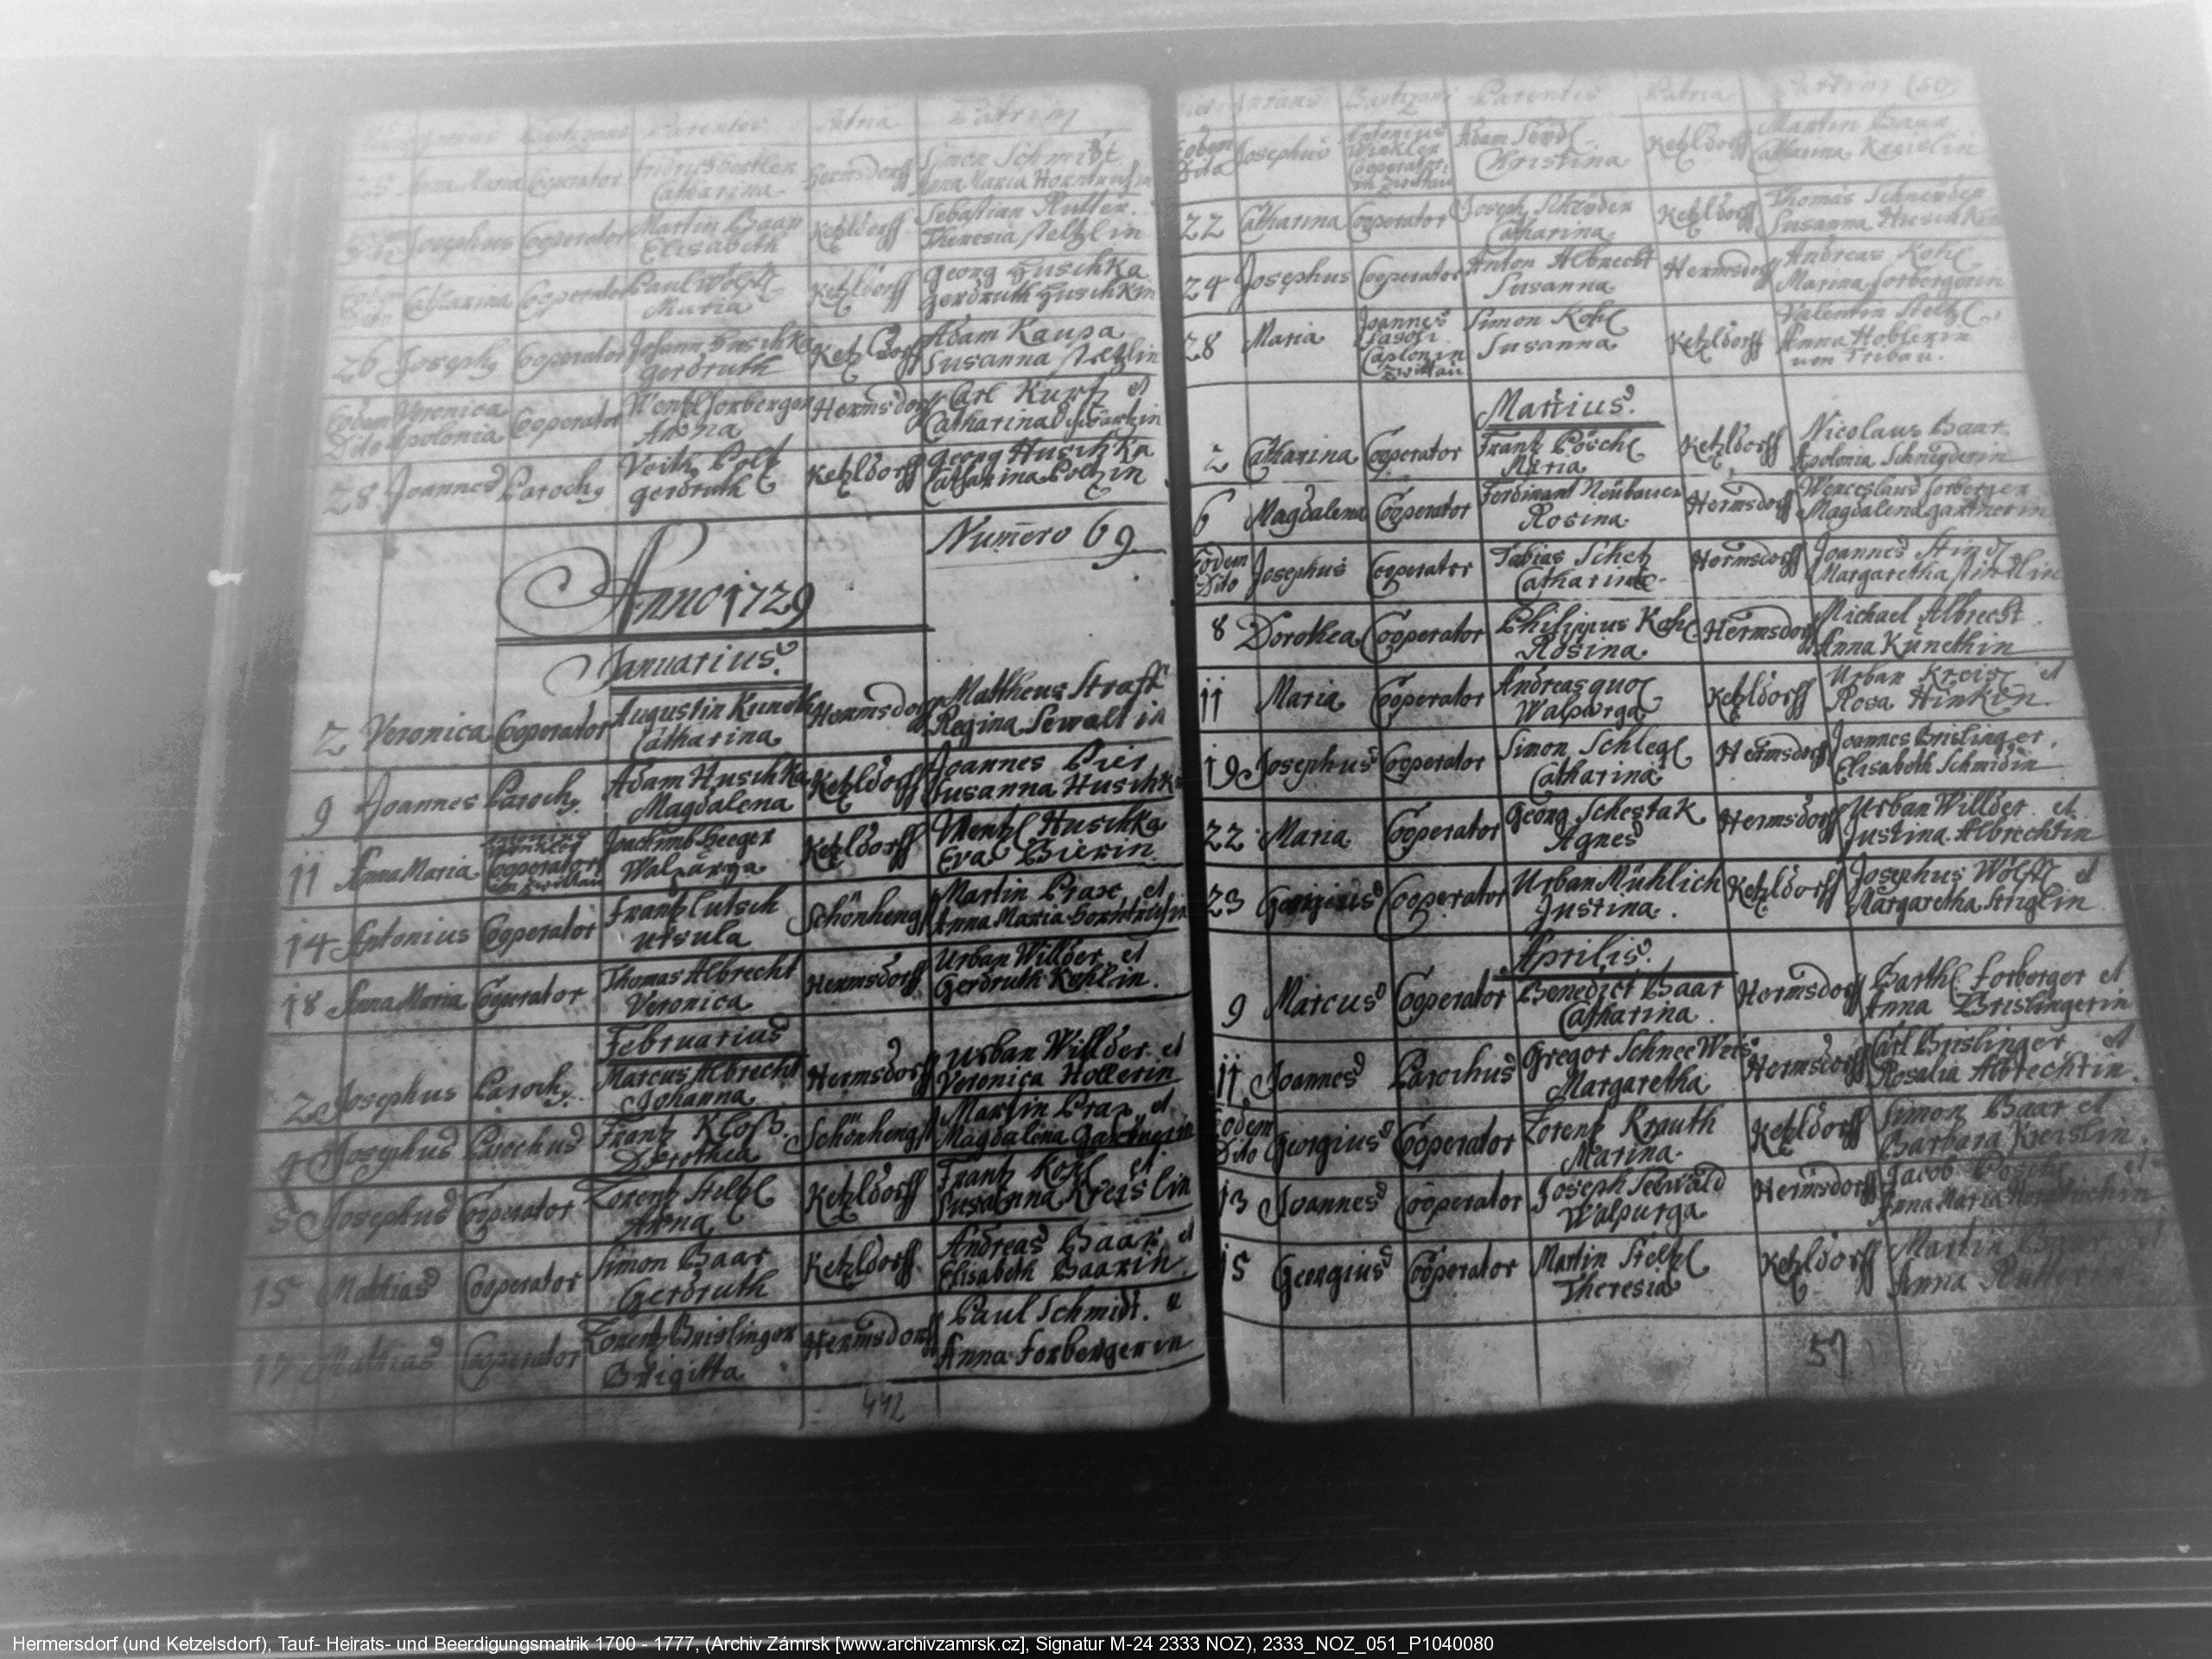 Parentes Patria Patrini
25 Anna Maria Cooperator Catharina Hermsdorff Simon Schmidt
Josephus Cooperator Martin Baar Elisabeth Ketzldorff Sebastian Rutter.
Theresia Steltzlin
Catharina Cooperator Paul Wölfl Maria Ketzldorff Georg Huschka
gerdruth Huschkin
26 Joseph9 Cooperator Johann Huschka gerdruth Ketzldorff Adam Kaupa
Susanna Steltzlin
Eodem Dito Veronica Apolonia Cooperator Wentzl forberger Anna Hermsdorff Carl Kurtz et
Catharina
28 Joannes Paroch9 Veith Poltz gerdruth Ketzldorff Georg Huschka
Catharina Poltzin
Numero 69
Anno 1729
Januarius.
2 Veronica Cooperator Augustin Kuneth Catharina Hermsdorff Mattheus Straff
Regina Sewaltin
9 Joannes Paroch9 Adam Huschka Magdalena Ketzldorff Joannes Pier
Susanna Huschk
11 Anna Maria Cooperator in Zwittau Joachimb Heeger Walpurga Ketzldorff Wentzl Huschka
Eva Bierin
14 Antonius Cooperator Frantz Lutsch ursula Schönhengst Martin Prax et
Anna Maria
18 Anna Maria Cooperator Thomas Albrecht Veronica Hermsdorff Urban Willder et
Gerdruth Kohlin.
Februarius
2 Josephus Paroch9 Marcus Albrecht Johanna Hermsdorff Urban Willder et
Veronica Hollerin
4 Josephus Parochus Frantz Kloß Dorothea Schönhengst Martin Prax et
Magdalena Gartnerin
5 Josephus Cooperator Lorentz Steltzl Anna Ketzldorff Frantz Kohl et
Susanna Kreislin
15 Mathias Cooperator Simon Baar Gerdruth Ketzldorff Andreas Baar et
Elisabeth Baarin.
17 Mathias Cooperator Lorentz Brislinger Brigitta Hermsdorff Paul Schmidt. et
Anna Forbergerin
442
Infans Baptizans Parentes Patria Patrini (50)
Eodem Dito Josephus Antonius Winkler Cooperator in Zwittau Adam Seydl Christina Ketzldorff Martin Baar
Catharina Kreislin
22 Catharina Cooperator Joseph Schröder Catharina Ketzldorff Thomas Schneyder
Susanna Huschkin
24 Josephus Cooperator Anton Albrecht Susanna Hermsdorff Andreas Kohl
Marina forbergerin
28 Maria Joannes Caplon in Zwittau Simon Kohl Susanna Ketzldorff Valentin Steltzl.
Anna Hoblerin
von Tribau.
Martius.
2 Catharina Cooperator Frantz Pöschl Maria Ketzldorff Nicolaus Baar
Apolonia Schneyderin
6 Magdalena Cooperator Ferdinant Neubauer Rosina Hermsdorff Wenceslaus forberger
Magdalena gartnerin
Eodem Dito Josephus Cooperator Tobias Schetz Catharina Hermsdorff Joannes Stindl
Margaretha Stindlin
8 Dorothea Cooperator Philippus Kohl Rosina Hermsdorff Michael Albrecht
Anna Kunethin
11 Maria Cooperator Andreas quol Walpurga Ketzldorff Urban Kreisl et
Rosa Hinkin
19 Josephus Cooperator Simon Schlegl Catharina Hermsdorff Joannes Brislinger.
Elisabeth Schmidin
22 Maria Cooperator Georg Schestak Agnes Hermsdorff Urban Willder et
Justina Albrechtin
23 Georgius Cooperator Urban Mühlich Justina. Ketzldorff Josephus Wölfl et
Margaretha Striglin
Aprilis.
9 Marcus Cooperator Benedict Baar Catharina Hermsdorff Barthl forberger et
Anna Brislingerin
11 Joannes Parochus Gregor SchneeWeis Margaretha Hermsdorff Carl Brislinger et
Rosalia Albrechtin.
Eodem Dito Georgius Cooperator Lorentz Krauth Marina Ketzldorff Simon Baar et
Barbara Kreislin.
13 Joannes Cooperator Joseph Seewald Walpurga Hermsdorff Jacob Pöschl et
Anna Maria
15 Georgius Cooperator Martin Steltzl Theresia Ketzldorff Martin
Anna Rutterin
57
Hermersdorf (und Ketzelsdorf), Tauf- Heirats- und Beerdigungsmatrik 1700 - 1777, (Archiv Zámrsk [www.archivzamrsk.cz], Signatur M-24 2333 NOZ), 2333_NOZ_051_P1040080